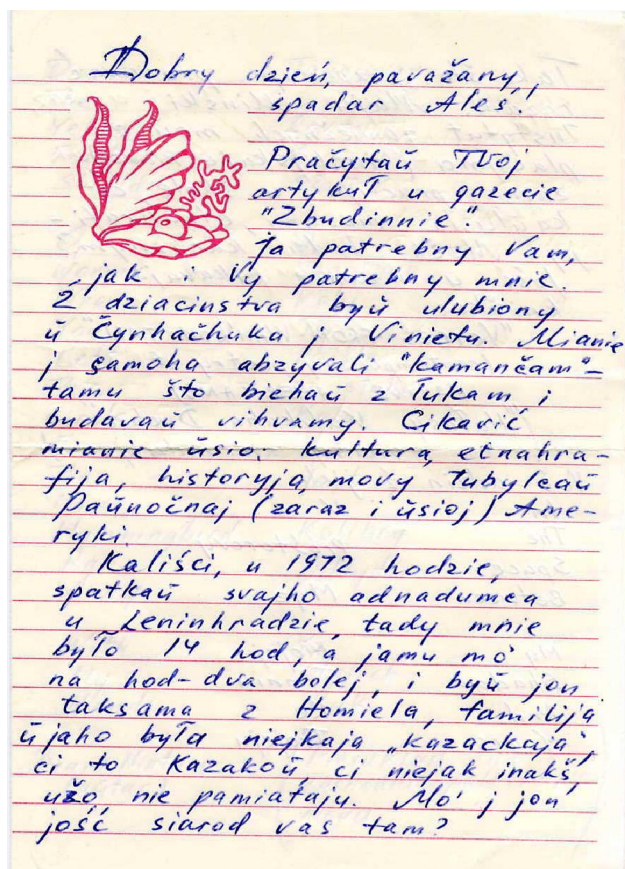 Dobry dzień, pavažany,
spadar Aleś!
Pračytaŭ Tvoj
artykuł u gazecie
"Zbudinnie".
Ja patrebny Vam,
jak i Vy patrebny mnie.
Z dziacinstva byŭ ulubiony
ŭ Čynhačhuka j Vinietu. Mianie
j samoha abzyvali "kamančam" –
tamu što biehaŭ z łukam i
budavaŭ vihvamy. Cikavić
mianie ŭsio: kultura, etnahra-
fija, historyja, movy Tubylcaŭ
Paŭnočnaj (zaraz i ŭsioj) Ame-
ryki.
Kaliści, u 1972 hodzie,
spatkaŭ svajho adnadumca
u Leninhradzie, tady mnie
było 14 hod, a jamu mo'
na hod-dva bolej, i byŭ jon
taksama z Homiela, familija
ŭ jaho była niejkaja „kazackaja",
ci to Kazakoŭ, ci niejak inakš,
užo nie pamiataju. Mo' j jon
jość siarod vas tam?